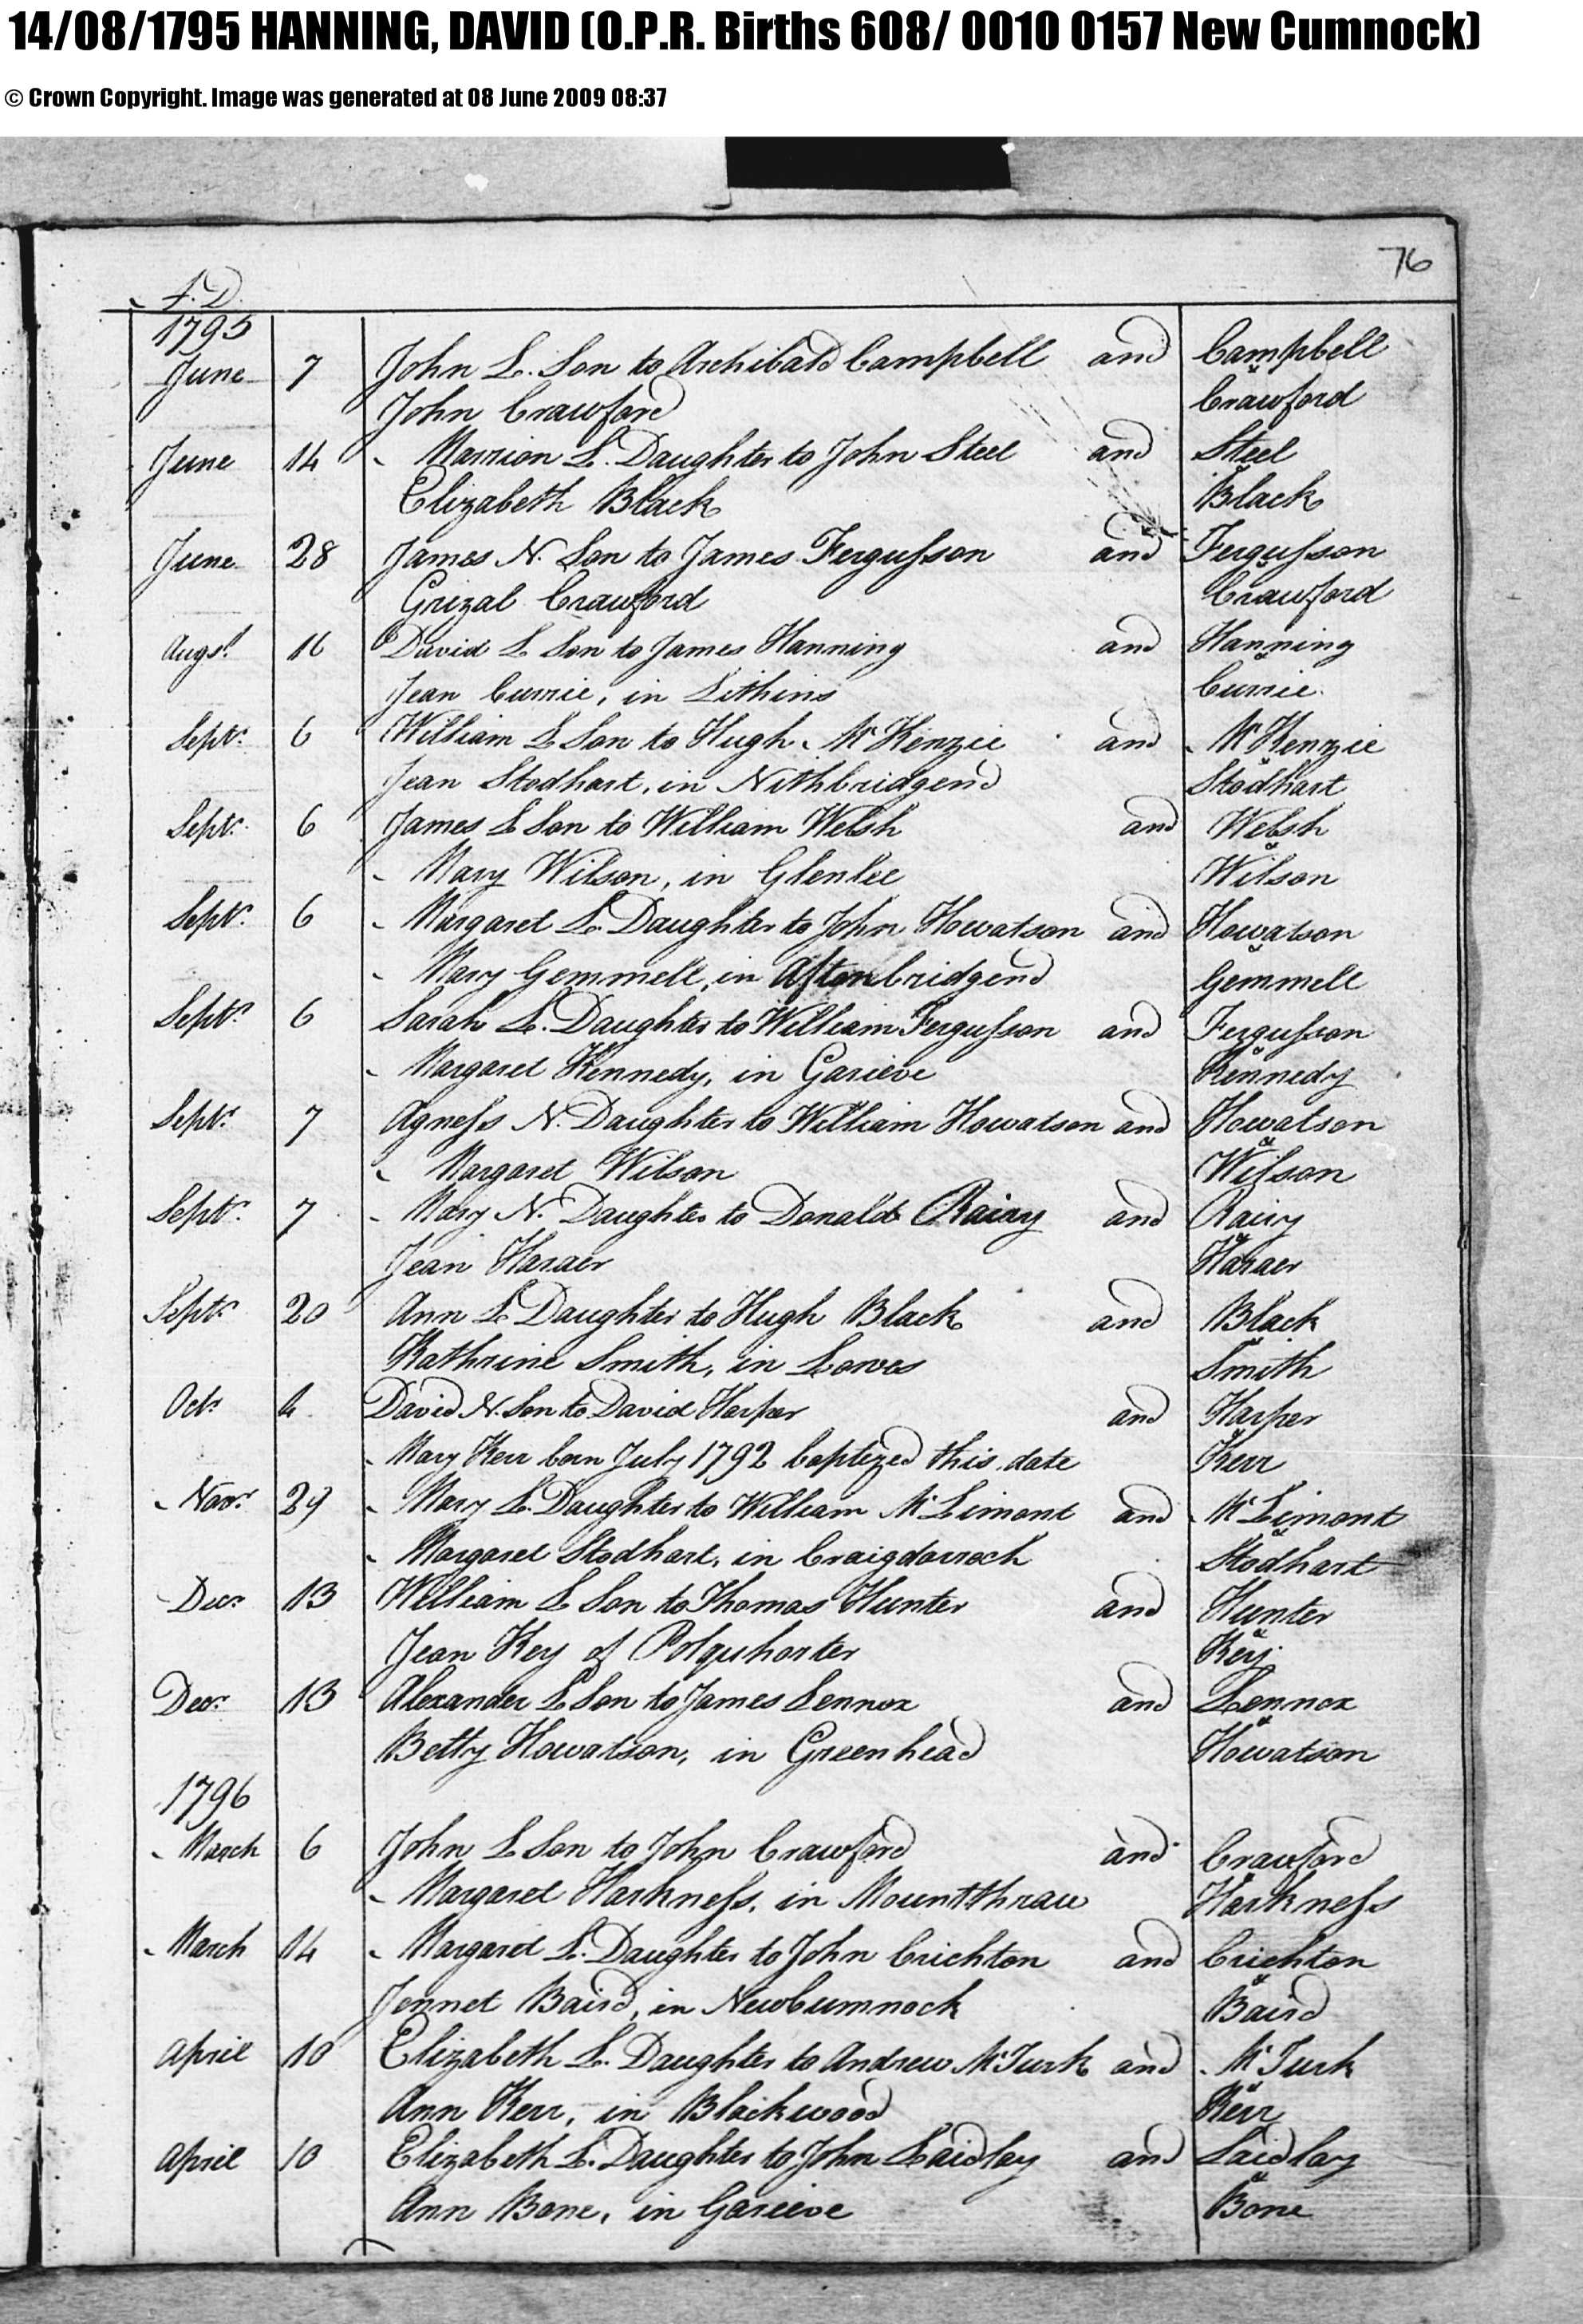 14/08/1795 HANNING, DAVID (O.P.R. Births 608/ 0010 0157 New Cumnock)
© Crown Copyright. Image was generated at 08 June 2009 08:37
76
A.D.
1795
June 7 John L. Son to Archibald Campbell and Campbell
John Crawford & Crawford
June 14 Marrion L. Daughter to John Steel and Steel
Elizabeth Black & Black
June 28 James N. Son to James Fergusson and Fergusson
Grizal Crawford & Crawford
Augst. 16 David L Son to James Hanning and Hanning
Jean Currie, in Lithins & Currie
Septr. 6 William L Son to Hugh McKenzie and McKenzie
Jean Stodhart, in Nithbridgend & Stodhart
Septr. 6 James L Son to William Welsh and Welsh
Mary Wilson, in Glenlee & Wilson
Septr. 6 Margaret L. Daughter to John Howatson and Howatson
Mary Gemmell, in Aftonbridgend & Gemmell
Septr. 6 Sarah L. Daughter to William Fergusson and Fergusson
Margaret Kennedy, in Garieve & Kennedy
Septr. 7 Agness N. Daughter to William Howatson and Howatson
Margaret Wilson & Wilson
Septr. 7 Mary N. Daughter to Donald Rairy and Rairy
Jean Haraer & Haraer
Septr. 20 Ann L Daughter to Hugh Black and Black
Kathrine Smith, in Lowes & Smith
Octr. 4 David N. Son to David Harper and Harper
Mary Kerr born July 1792 baptized this date & Kerr
Novr. 29 Mary L. Daughter to William McLimont and McLimont
Margaret Stodhart, in Craigdarroch & Stodhart
Decr. 13 William L Son to Thomas Hunter and Hunter
Jean Key of Polquhorter & Key
Decr. 13 Alexander L Son to James Lennox and Lennox
Betty Howatson, in Greenhead & Howatson
1796
March 6 John L Son to John Crawford and Crawford
Margaret Harkness, in Mountthraw & Harkness
March 14 Margaret L. Daughter to John Crichton and Crichton
Jennet Baird, in Newcumnock & Baird
April 10 Elizabeth L. Daughter to Andrew McTurk and McTurk
Ann Kerr, in Blackwood & Kerr
April 10 Elizabeth L. Daughter to John Laidlay and Laidlay
Ann Bone, in Garieve & Bone